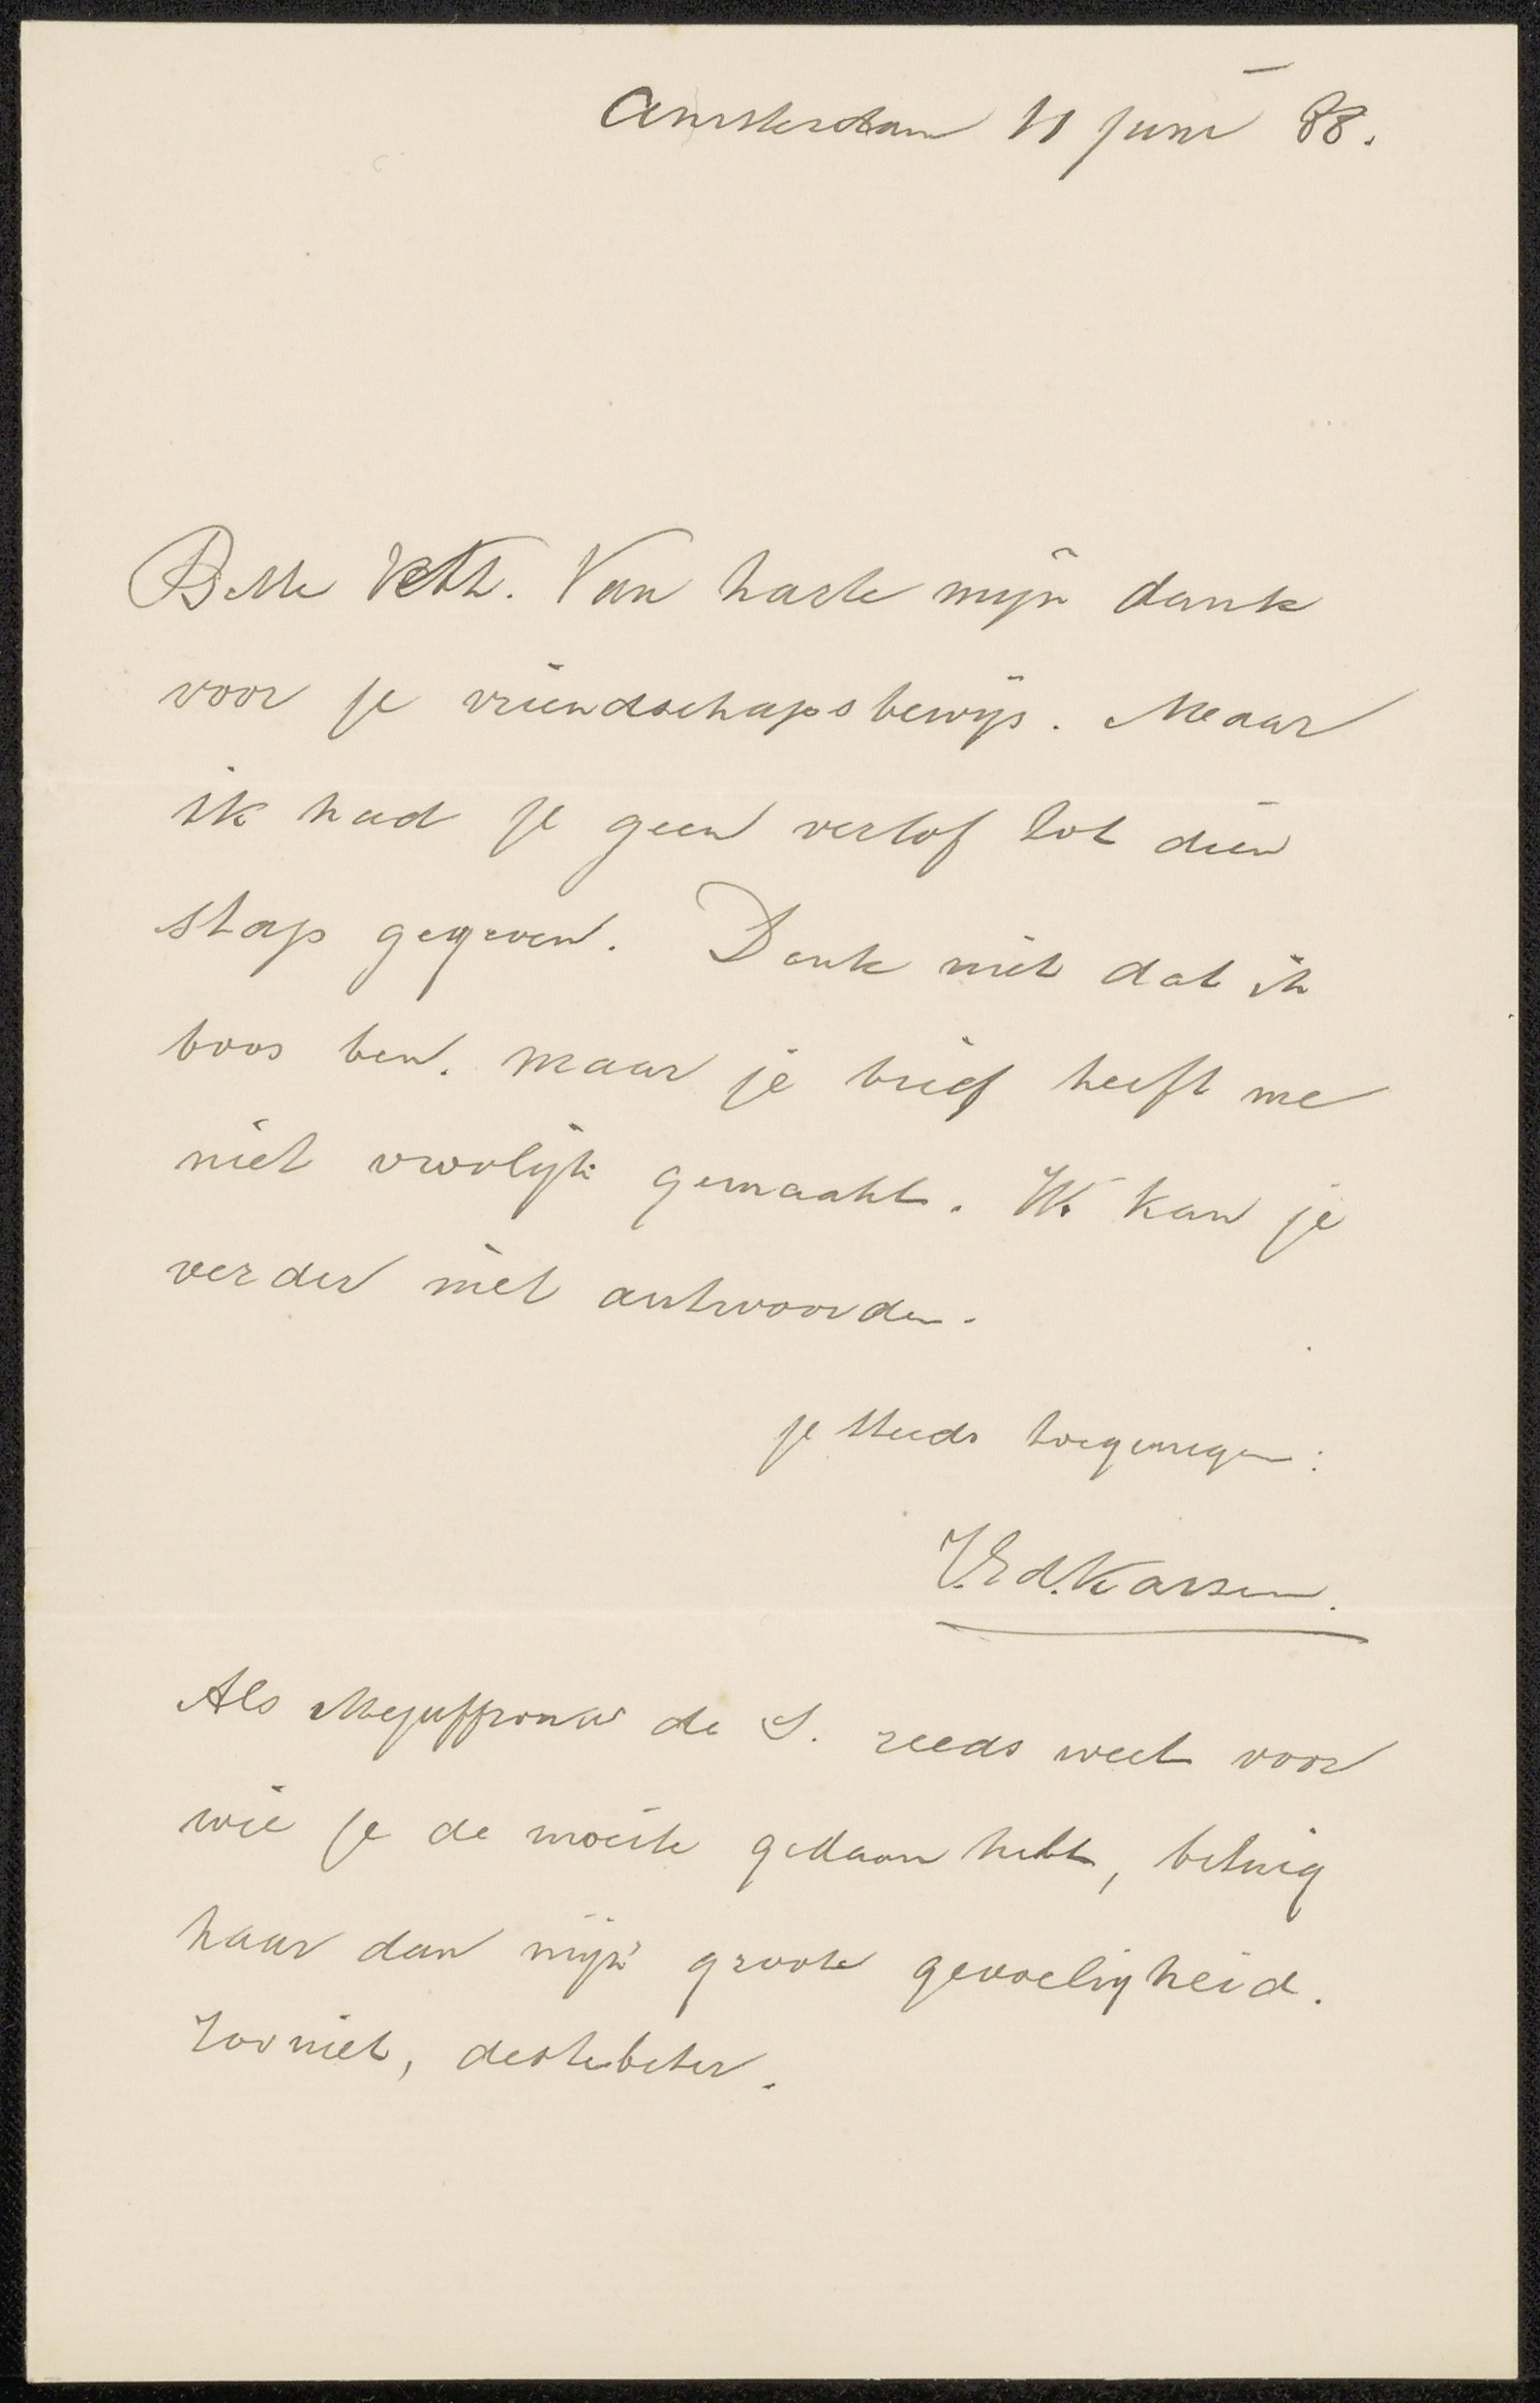 Amsterdam 11 Juni 88.
Beste Veth. Van harte mijn dank
voor je vriendschapsbewijs. Maar
ik had je geen verlof tot dien
stap gegeven. Denk niet dat ik
boos ben. maar je brief heeft me
niet vroolijk gemaakt. Ik kan je
verder niet antwoorden.
je steeds toegenegen:
J. Ed. Karsen.
Als Mejuffrouw de S. reeds weet voor
wie je de moeite gedaan hebt, betuig
haar dan mijn groote gevoeligheid.
Zoo niet, destebeter.